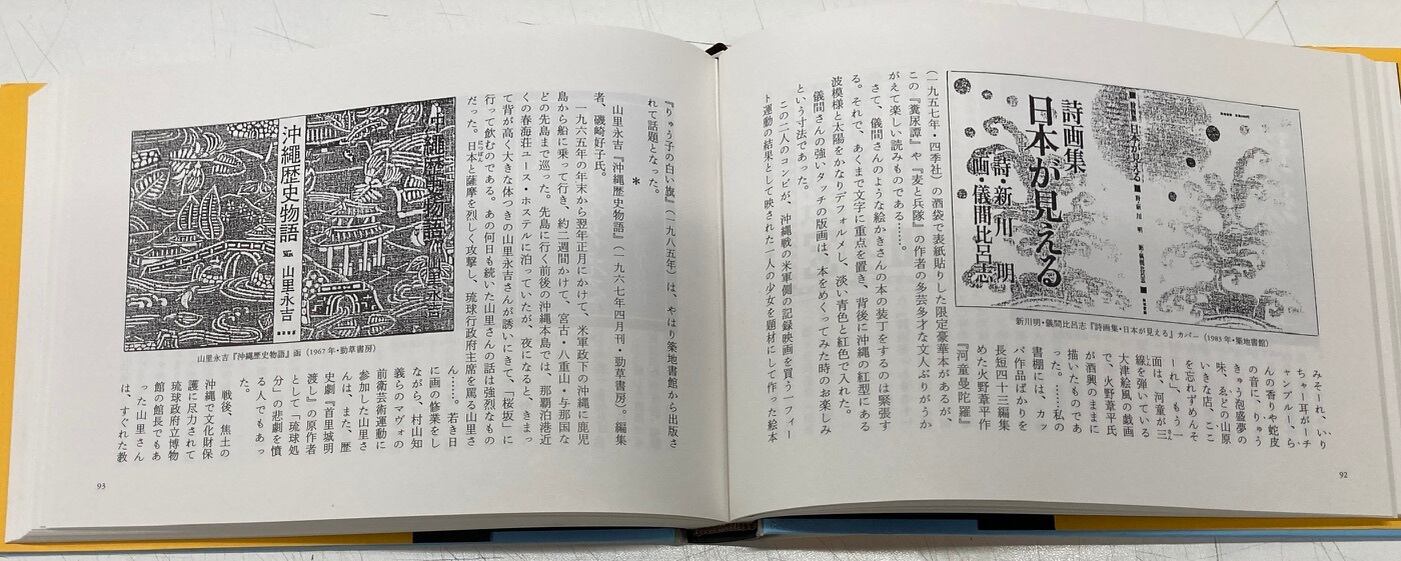 詩画集
日本が見える
詩・新川 明
画・儀間比呂志
日本が見える
新川明・儀間比呂志『詩画集・日本が見える』カバー(1983年・築地書館)
みそーれ、いり
ちゃー耳がーチ
ャンプルー、ら
んの香りや蛇皮
の音に、りゅう
きゅう泡盛夢の
味、ゑどの山原
いきな店、ここ
を忘れずめんそ
ーれ」、もう一
面は、河童が三
線を弾いている
大津絵風の戯画
で、火野葦平氏
が酒興のままに
描いたものであ
った。……私の
書棚には、カッ
パ作品ばかりを
長短四十三編集
めた火野葦平作
『河童曼陀羅』
(一九五七年・四季社)の酒袋で表紙貼りした限定豪華本があるが、
この『糞尿譚』や『麦と兵隊』の作者の多芸多才な文人ぶりがうか
がえて楽しい読みものである……。
さて、儀間さんのような絵かきさんの本の装丁をするのは緊張す
る。それで、あくまで文字に重点を置き、背後に沖縄の紅型にある
波模様と太陽をかなりデフォルメし、淡い青色と紅色で入れた。
儀間さんの強いタッチの版画は、本をめくってみた時のお楽しみ
という寸法であった。
この二人のコンビが、沖縄戦の米軍側の記録映画を買う一フィー
ト運動の結果として映された一人の少女を題材にして作った絵本
92
『りゅう子の白い旗』(一九八五年)は、やはり築地書館から出版さ
れて話題となった。
*
山里永吉『沖縄歴史物語』(一九六七年四月刊・勁草書房)。編集
者、磯崎好子氏。
一九六五年の年末から翌年正月にかけて、米軍政下の沖縄に鹿児
島から船に乗って行き、約二週間かけて、宮古・八重山・与那国な
どの先島まで巡った。先島に行く前後の沖縄本島では、那覇泊港近
くの春海荘ユース・ホステルに泊っていたが、夜になると、きまっ
て背が高く大きな体つきの山里永吉さんが誘いにきて、「桜坂」に
行って飲むのである。あの何日も続いた山里さんの話は強烈なもの
だった。日本と薩摩を烈しく攻撃し、琉球行政府主席を罵る山里さ
ん……。若き日
に画の修業をし
ながら、村山知
義らのマヴォの
前衛芸術運動に
参加した山里さ
んは、また、歴
史劇『首里城明
渡し』の原作者
として「琉球処
分」の悲劇を憤
る人でもあっ
た。
戦後、焦土の
沖縄で文化財保
護に尽力されて
琉球政府立博物
館の館長でもあ
った山里さん
は、すぐれた教
沖縄歴史物語
山里永吉
沖縄歴史物語
山里永吉
山里永吉『沖縄歴史物語』函(1967年・勁草書房)
93